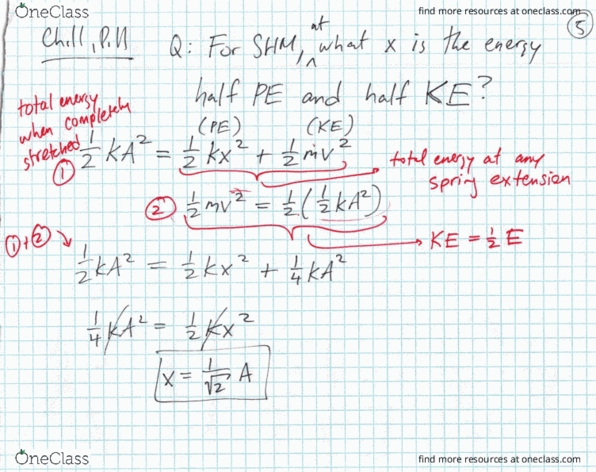 OneClass
find more resources at oneclass.com
5
Ch.11, P.11
Q: For SHM, at what x is the energy
half PE and half KE?
total energy
when completely
stretched
(PE) (KE)
① 1/2 kA² = 1/2 kx² + 1/2 mv²
total energy at any
spring extension
② 1/2 mv² = 1/2 (1/2 kA²)
KE = 1/2 E
①+②
1/2 kA² = 1/2 kx² + 1/4 kA²
1/4 kA² = 1/2 kx²
x = 1/√2 A
OneClass
find more resources at oneclass.com